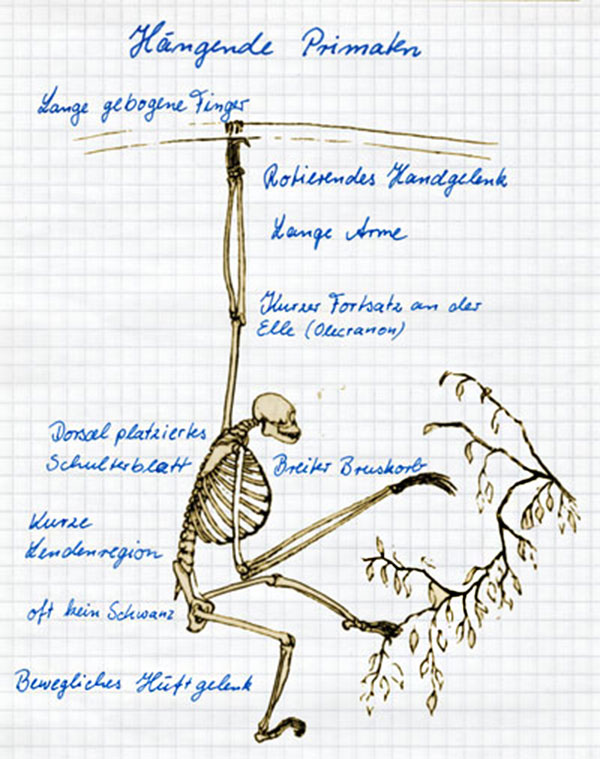 Hängende Primaten
Lange gebogene Finger
Rotierendes Handgelenk
Lange Arme
Kurzer Fortsatz an der
Elle (Olecranon)
Dorsal platziertes
Schulterblatt
Breiter Bruskorb
Kurze
Lendenregion
oft kein Schwanz
Bewegliches Hüftgelenk